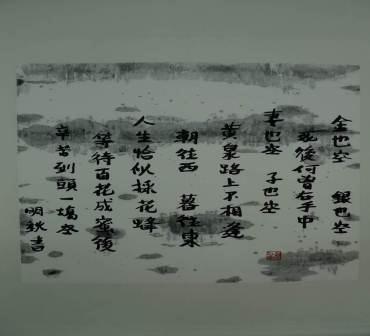 金也空 銀也空
死後何曾在手中
妻也空 子也空
黃泉路上不相逢
朝往西 暮往東
人生恰似採花蜂
等待百花成蜜後
辛苦到頭一場空
明秋書